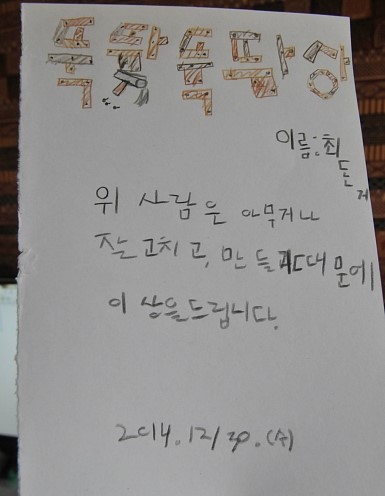 뚝딱뚝딱상
이름:최
돈
위 사람은 아무거나
잘 고치고, 만들기때문에
이 상을드립니다.
2014.12/30.(수)